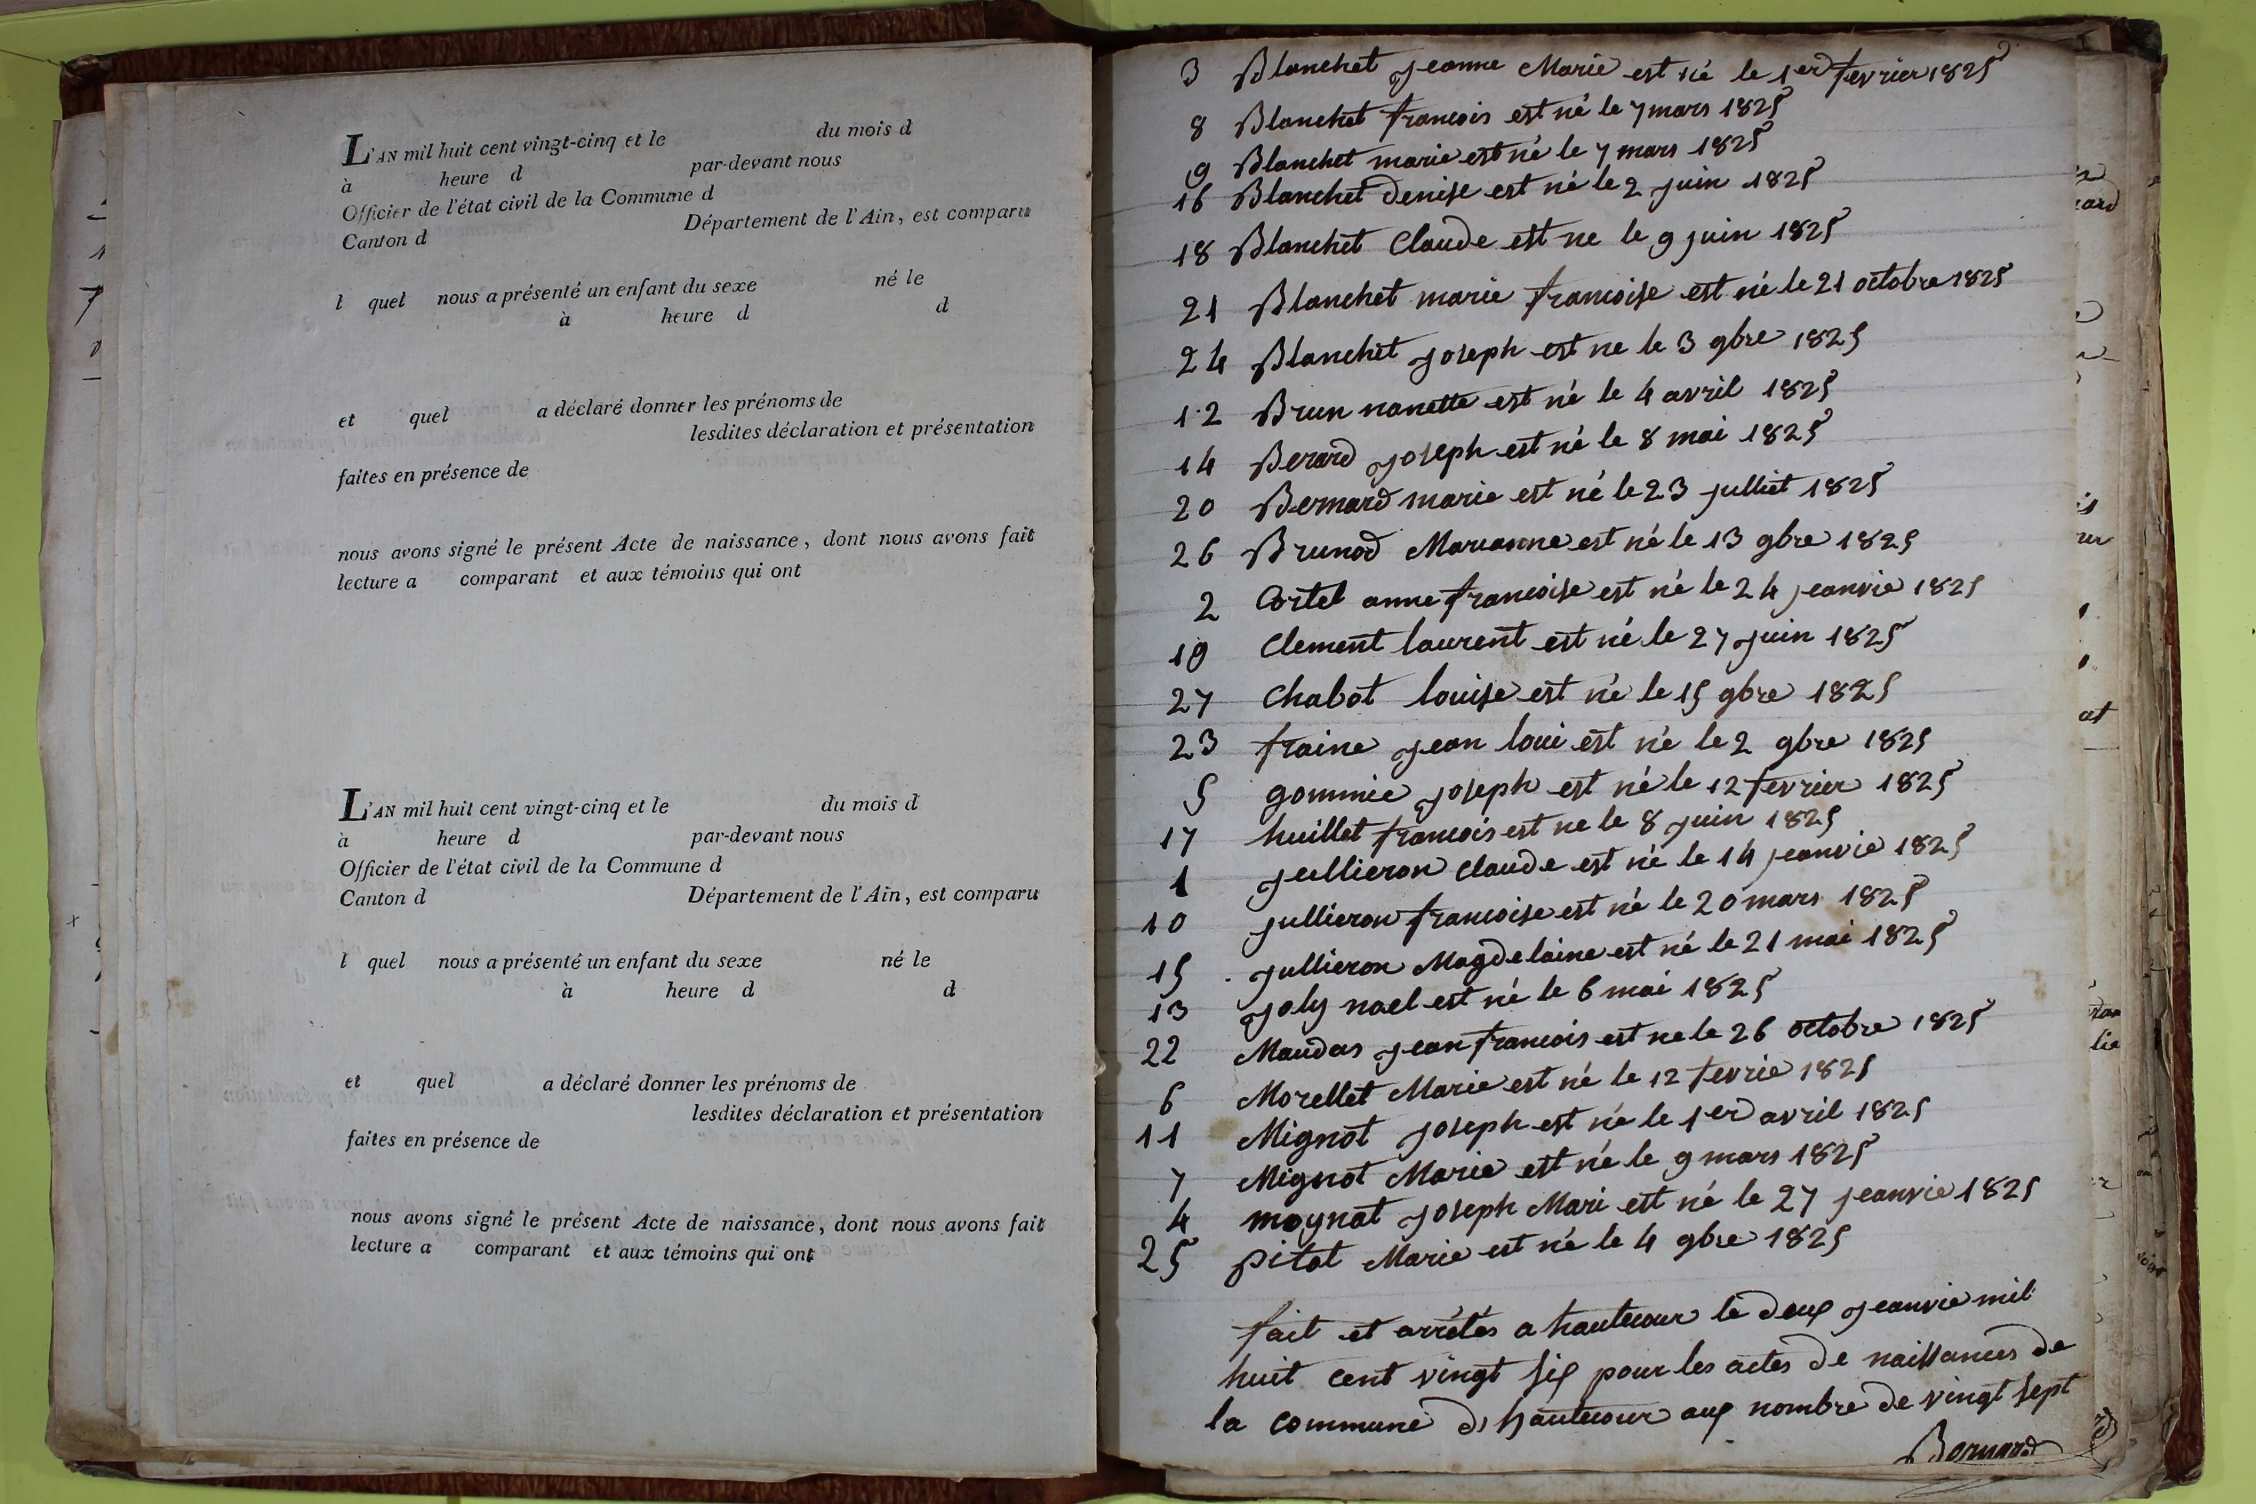 L'AN mil huit cent vingt-cinq et le du mois d
à heure d par-devant nous
Officier de l'état civil de la Commune d
Canton d Département de l'Ain, est comparu
l quel nous a présenté un enfant du sexe né le
à heure d d
et quel a déclaré donner les prénoms de
lesdites déclaration et présentation
faites en présence de
nous avons signé le présent Acte de naissance, dont nous avons fait
lecture a comparant et aux témoins qui ont
L'AN mil huit cent vingt-cinq et le du mois d
à heure d par-devant nous
Officier de l'état civil de la Commune d
Canton d Département de l'Ain, est comparu
l quel nous a présenté un enfant du sexe né le
à heure d d
et quel a déclaré donner les prénoms de
lesdites déclaration et présentation
faites en présence de
nous avons signé le présent Acte de naissance, dont nous avons fait
lecture a comparant et aux témoins qui ont
3 Blanchet Jeanne Marie est né le 1er fevrier 1825
8 Blanchet francois est né le 7 mars 1825
9 Blanchet marie est né le 7 mars 1825
16 Blanchet Denise est né le 2 Juin 1825
18 Blanchet Claude est ne le 9 juin 1825
21 Blanchet marie francoise est né le 21 octobre 1825
24 Blanchet Joseph est ne le 3 gbre 1825
12 Brun nanette est né le 4 avril 1825
14 Berard Joseph est né le 8 mai 1825
20 Bernard marie est né le 23 Julliet 1825
26 Brunod Marianne est né le 13 gbre 1825
2 Cortel anne francoise est né le 24 jeanvie 1825
19 Clement laurent est né le 27 Juin 1825
27 Chabot louise est né le 15 gbre 1825
23 fraine Jean loui est né le 2 gbre 1825
5 gommie Joseph est né le 12 fevrier 1825
17 huillet francois est ne le 8 Juin 1825
1 Jullieron Claude est né le 14 jeanvie 1825
10 Jullieron francoise est né le 20 mars 1825
15 Jullieron Magdelaine est né le 21 mai 1825
13 Joly nael est né le 6 mai 1825
22 Maudas Jean francois est ne le 26 octobre 1825
6 Morellet Marie est né le 12 fevrie 1825
11 Mignot Joseph est né le 1er avril 1825
7 Mignot Marie est né le 9 mars 1825
4 moynat Joseph Mari est né le 27 jeanvie 1825
25 pitot Marie est né le 4 gbre 1825
fait et arrêtés a hautecour le deux Jeanvie mil
huit cent vingt six pour les actes de naissances de
la commune d hautecour aux nombre de vingt sept
Bernard